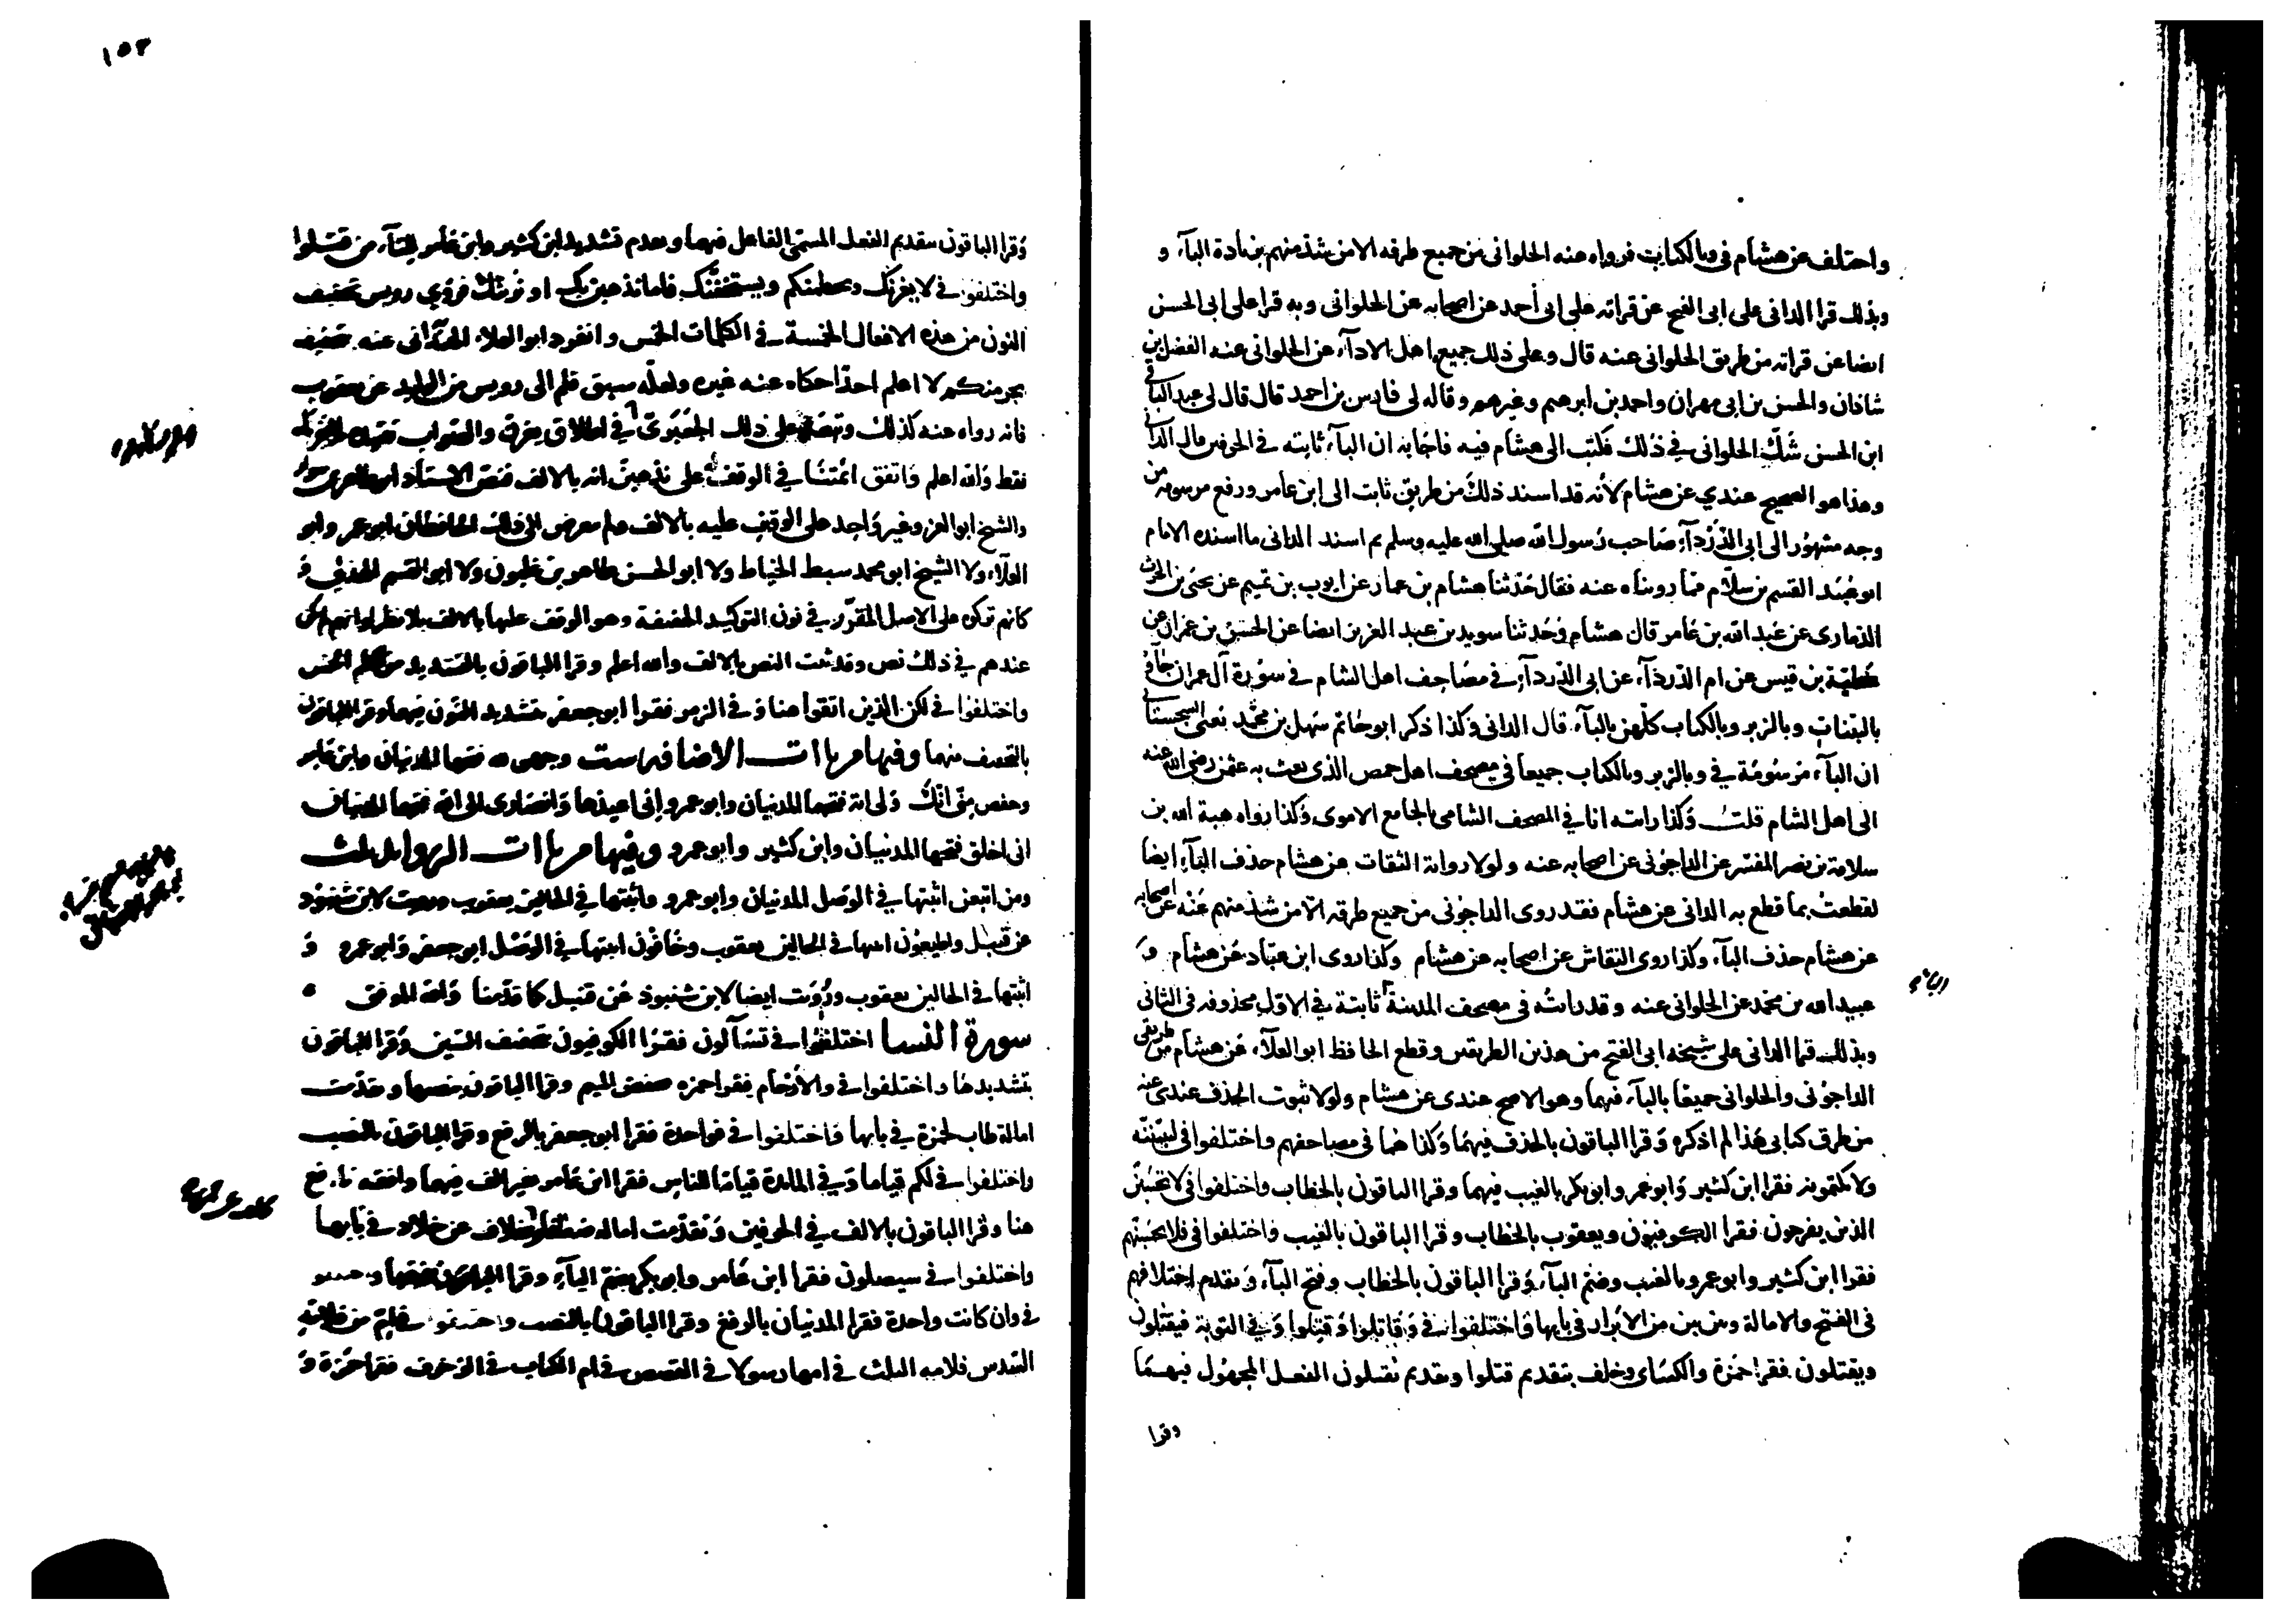 واختلف عن هشام في وبالكتاب فرواه عنه الحلواني من جميع طرقه الا من شذ منهم بزيادة الباء و
وبذلك قرا الداني على ابي الفتح عن قراته على ابي أحمد عن اصحابه عن الحلواني وبه قرا على ابي الحسن
ايضا عن قراته من طريق الحلواني عنه قال وعلى ذلك جميع اهل الاداء عن الحلواني عنه الفضل بن
شاذان والحسن بن ابي مهران واحمد بن ابرهيم وغيرهم وقاله لي فارس بن احمد قال قال لي عبد الباقي
ابن الحسن شك الحلواني في ذلك فكتب الى هشام فيه فاجابه ان الباء ثابتة في الحرفين قال الداني
وهذا هو الصحيح عندي عن هشام لأنه قد اسند ذلك من طريق ثابت الى ابن عامر ورفع مرسومه من
وجه مشهور الى ابي الدرداء صاحب رسول الله صلى الله عليه وسلم ثم اسند الداني ما اسنده الامام
ابو عبيد القسم بن سلام مما رويناه عنه فقال حدثنا هشام بن عمار عن ايوب بن تميم عن يحيى بن الحرث
الذماري عن عبد الله بن عامر قال هشام وحدثنا سويد بن عبد العزيز ايضا عن الحسن بن عمران عن
عطية بن قيس عن ام الدرداء عن ابي الدرداء في مصاحف اهل الشام في سورة آل عمران جاؤ
بالبينات وبالزبر وبالكتاب كلهن بالباء قال الداني وكذا ذكر ابو حاتم سهل بن محمد يعني السجستاني
ان الباء مرسومة في وبالزبر وبالكتاب جميعا في مصحف اهل حمص الذي بعث به عثمن رضي الله عنه
الى اهل الشام قلت وكذا رايته انا في المصحف الشامي بالجامع الاموي وكذا رواه هبة الله بن
سلامة بن نصر المفسر عن الداجوني عن اصحابه عنه ولولا رواية الثقات عن هشام حذف الباء ايضا
لقطعت بما قطع به الداني عن هشام فقد روى الداجوني من جميع طرقه الا من شذ منهم عنه عن اصحابه
عن هشام حذف الباء وكذا روى النقاش عن اصحابه عن هشام وكذا روى ابن عباد عن هشام و
عبيد الله بن محمد عن الحلواني عنه وقد رايته في مصحف المدينة ثابتة في الاول محذوفة في الثاني
وبذلك قرا الداني على شيخه ابي الفتح من هذين الطريقين وقطع الحافظ ابو العلاء عن هشام من طريقي
الداجوني والحلواني جميعا بالباء فيهما وهو الاصح عندي عن هشام ولولا ثبوت الحذف عندي عنه
من طرق كتابي هذا لم اذكره وقرا الباقون بالحذف فيهما وكذا هما في مصاحفهم واختلفوا في لتبيننه
ولا تكتمونه فقرا ابن كثير وابو عمرو وابو بكر بالغيب فيهما وقرا الباقون بالخطاب واختلفوا في لا تحسبن
الذين يفرحون فقرا الكوفيون ويعقوب بالخطاب وقرا الباقون بالغيب واختلفوا في فلا تحسبنهم
فقرا ابن كثير وابو عمرو بالغيب وضم الباء وقرا الباقون بالخطاب وفتح الباء وتقدم اختلافهم
في الفتح والامالة وبين بين من الأبرار في بابها واختلفوا في وقاتلوا وقتلوا وفي التوبة فيقتلون
ويقتلون فقرا حمزة والكسائ وخلف بتقديم قتلوا وتقديم يقتلون الفعل المجهول فيهما
وقرا
١٥٣
وقرا الباقون بتقديم الفعل المسمى الفاعل فيهما وتقدم تشديد ابن كثير وابن عامر للتاء من قتلوا
واختلفوا في لا يغرنك ويحطمنكم ويستخفنك فاما نذهبن بك او نرينك فروى رويس تخفيف
النون من هذه الافعال الخمسة في الكلمات الخمس وانفرد ابو العلاء الهمذاني عنه بتخفيف
يجرمنكم لا اعلم احدا حكاه عنه غيره ولعله سبق قلم الى رويس من الوليد عن يعقوب
فانه رواه عنه كذلك وتبعه على ذلك الجعبري في اطلاق يغرن والصواب تقييده
فقط والله اعلم واتفق ائمتنا في الوقف له على نذهبن انه بالالف فنص الاستاذ ابو طاهر بن سوار
والشيخ ابو العز وغير واحد على الوقف عليه بالالف ولم يتعرض الى ذلك الحافظان ابو عمرو وابو
العلاء ولا الشيخ ابو محمد سبط الخياط ولا ابو الحسن طاهر بن غلبون ولا ابو القسم الهذلي و
كانهم تركوه على الاصل المقرر في نون التوكيد الخفيفة وهو الوقف عليها بالالف بلا نظر او انهم لم يكن
عندهم في ذلك نص وقد ثبت النص بالالف والله اعلم وقرا الباقون بالتشديد من الكلم الخمس
واختلفوا في لكن الذين اتقوا هنا وفي الزمر فقرا ابو جعفر بتشديد النون فيهما وقرا الباقون
بالتخفيف فيهما وفيها من ياات الاضافة ست وجهي لله فتحها المدنيان وابن عامر
وحفص مني انك ولي اية فتحهما المدنيان وابو عمرو واني اعيذها وانصاري الى الله فتحهما المدنيان
اني اخلق فتحها المدنيان وابن كثير وابو عمرو وفيها من ياات الزوايد ثلث
ومن اتبعن اثبتها في الوصل المدنيان وابو عمرو واثبتها في الحالين يعقوب ورويت لابن شنبوذ
عن قنبل واطيعون اثبتها في الحالين يعقوب وخافون اثبتها في الوصل ابو جعفر وابو عمرو و
اثبتها في الحالين يعقوب ورويت ايضا لابن شنبوذ عن قنبل كما قدمنا والله الموفق
سورة النسا اختلفوا في تسآلون فقرا الكوفيون بتخفيف السين وقرا الباقون
بتشديدها واختلفوا في والأرحام فقرا حمزة بخفض الميم وقرا الباقون بنصبها وتقدمت
امالة طاب لحمزة في بابها واختلفوا في فواحدة فقرا ابو جعفر بالرفع وقرا الباقون بالنصب
واختلفوا في لكم قياما وفي المائدة قياما للناس فقرا ابن عامر بغير الف فيهما وافقه نافع
هنا وقرا الباقون بالالف في الحرفين وتقدمت امالة ضعافا بخلاف عن خلاد في بابها
واختلفوا في سيصلون فقرا ابن عامر وابو بكر بضم الياء وقرا الباقون بفتحها واختلفوا
في وان كانت واحدة فقرا المدنيان بالرفع وقرا الباقون بالنصب واختلفوا في فلامه
السدس فلامه الثلث في امها رسولا في القصص في ام الكتاب في الزخرف فقرا حمزة و